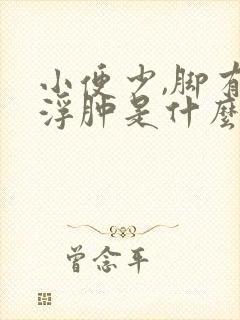 小便少,脚有
浮肿是什麼
曾念平